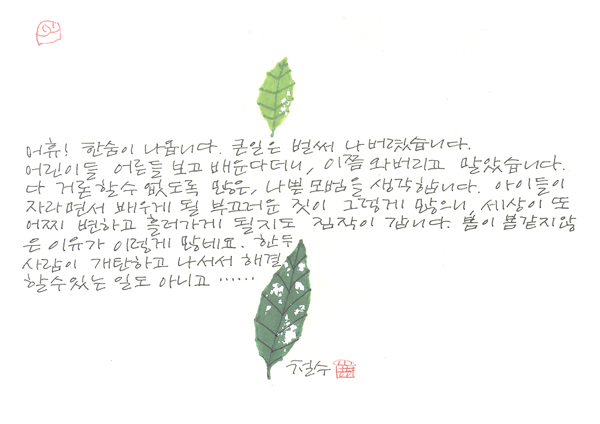 어휴! 한숨이 나옵니다. 큰일은 벌써 나버렸습니다.
어린이들 어른들 보고 배운다더니, 이쯤 와버리고 말았습니다.
다 거론할 수 없도록 많은, 나쁜 모범을 생각합니다. 아이들이
자라면서 배우게 될 부끄러운 짓이 그렇게 많으니, 세상이 또
어찌 변하고 흘러가게 될지도 짐작이 갑니다. 봄이 봄같지 않
은 이유가 이렇게 많네요. 한두
사람이 개탄하고 나서서 해결
할 수 있는 일도 아니고 ......
철수